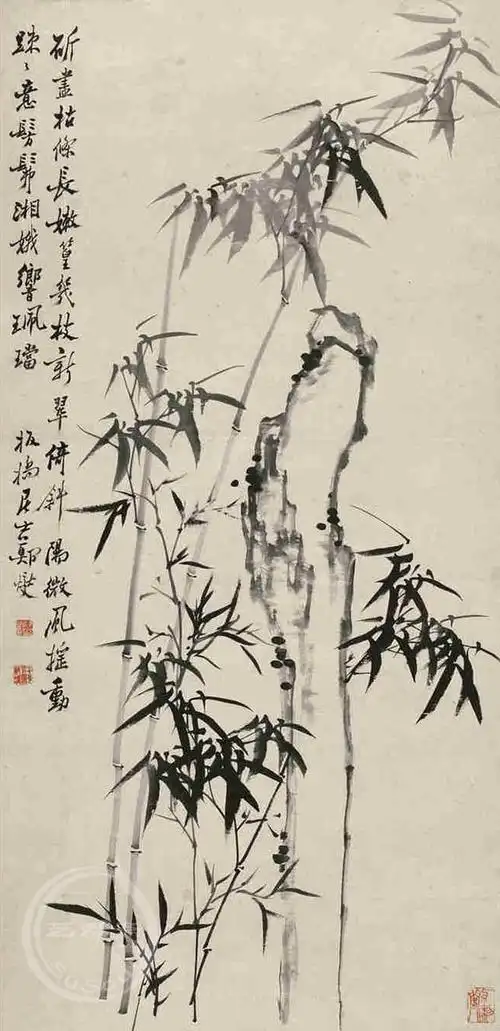 斫盡枯條長嫩篁幾枝新翠倚斜陽微風搖動
踈〻意髣髴湘娥響珮璫
板橋居士鄭燮